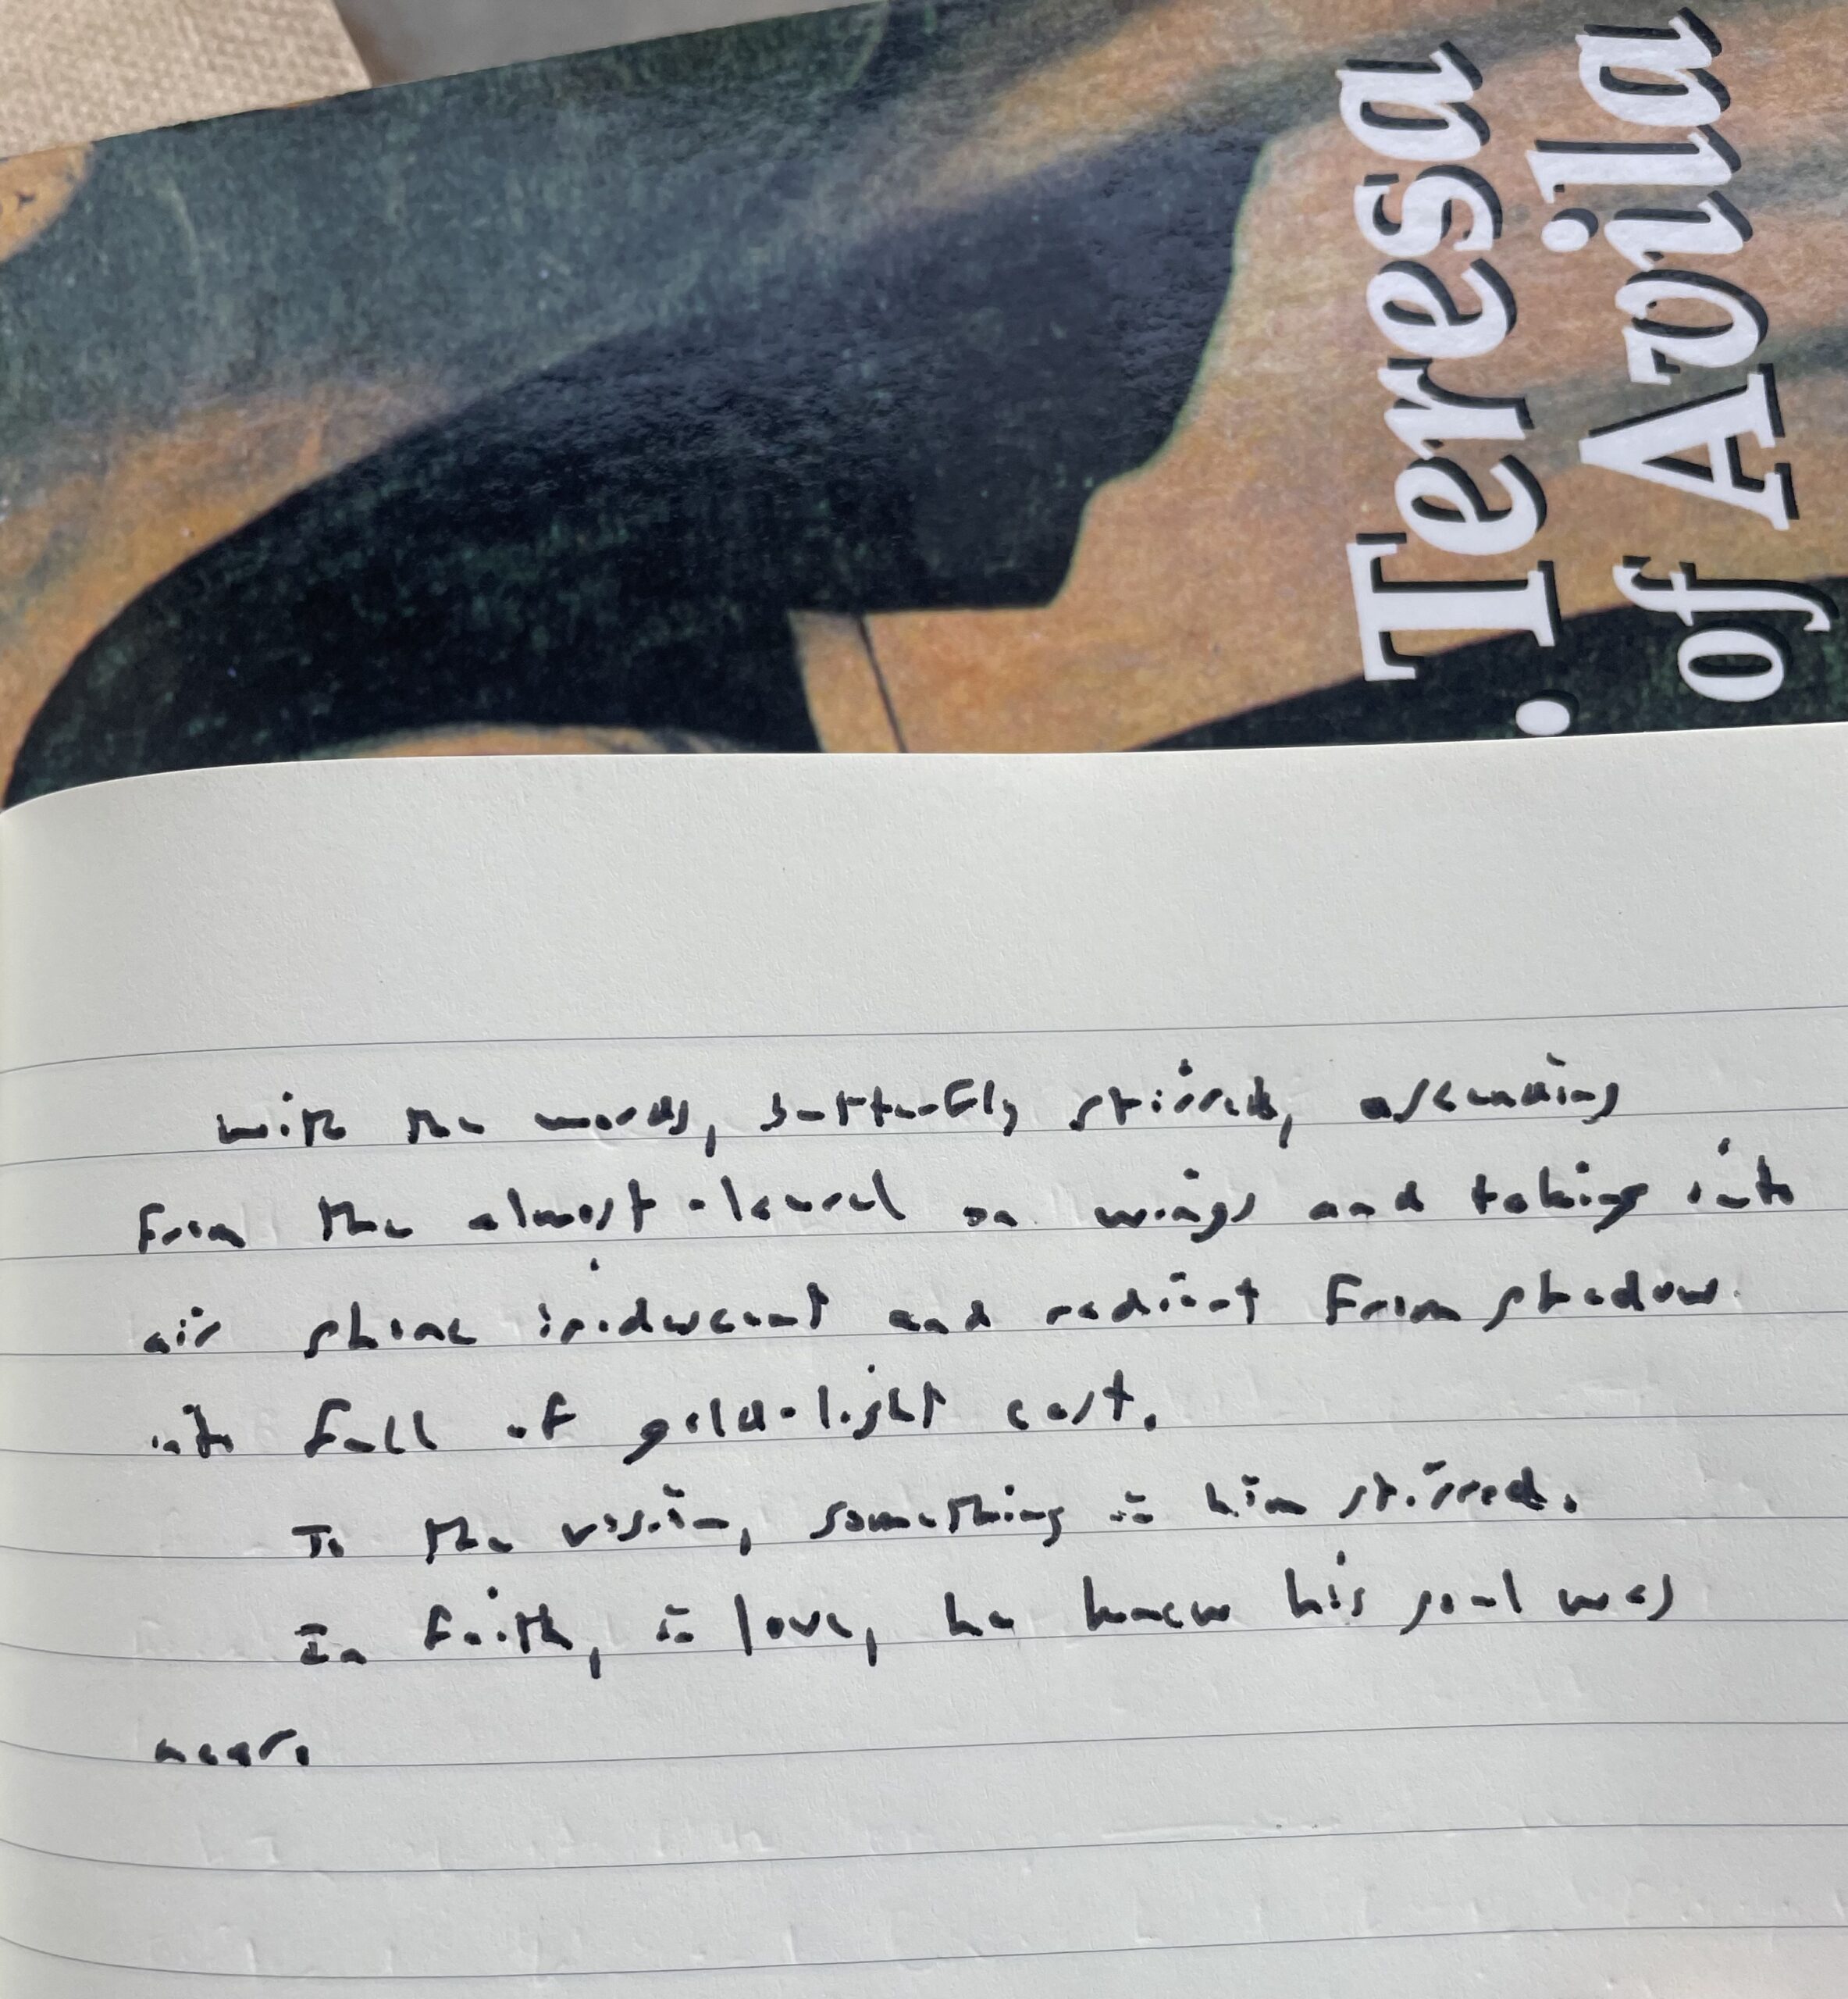 Teresa
of Avila
with the words, butterfly stirred, ascending
from the almost-laurel on wings and taking into
air shone iridescent and radiant from shadow
into fall of gold-light cast.
To the vision, something in him stirred.
In faith, in love, he knew his soul was
near.